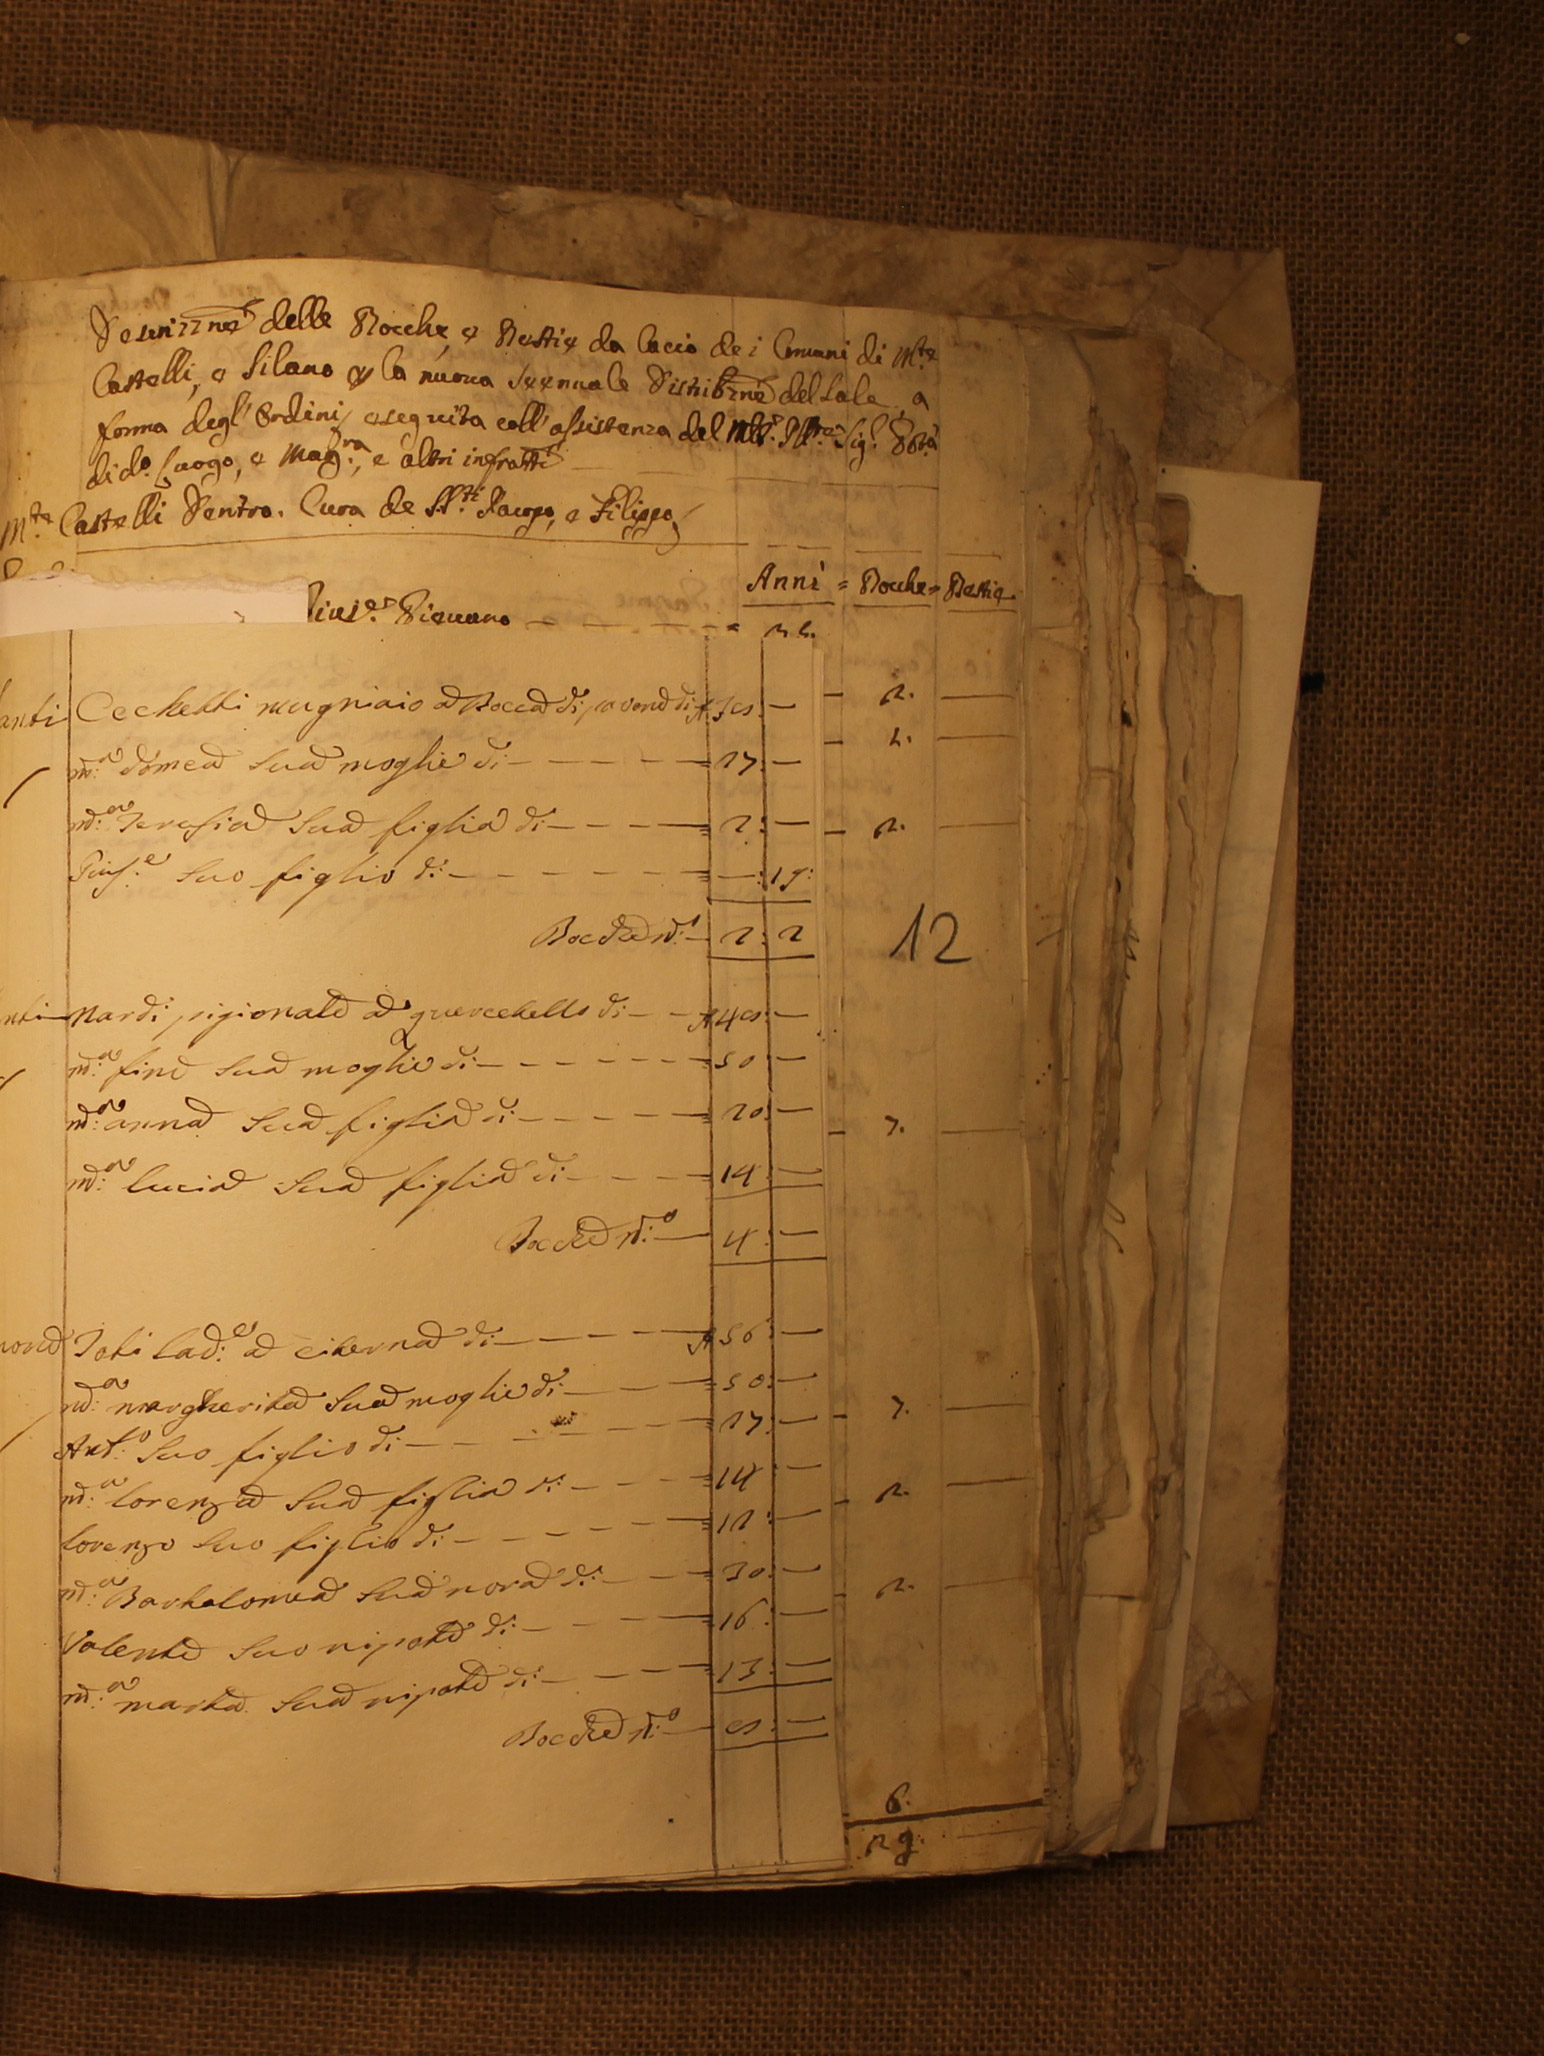 Descrizzne delle Bocche, e Bestie da Cacio dei Comuni di Mte
Castelli, e Silano p la nuova Seennale Distribzne del Sale, a
forma degl' Ordini, eseguita coll' assistenza del Sig. Potà
di do. Luogo, e Mag.ra, e altri infratti
M.te Castelli Dentro. Cura de SS.ti Jacopo, e Filippo
Anni = Bocche = Bestie
Pievano
anti Cechetti mugniaio a Bocca di pavone di
m.a domea sua moglie di — 27: —
m.a Teresia sua figlia di — 2: —
Gius.e suo figlio di — :19:
Bocche n.o — 2: 2
12
Nardi pigionale a querceto di
m.a fine sua moglie di — 50 —
m.a anna sua figlia di — 20: —
m.a lucia sua figlia di — 14: —
Bocche n.o — 4: —
Toti lad.e a citerna di — A 56: —
m.a margherita sua moglie di — 50: —
Ant.o suo figlio di — 17: —
m.a lorenza sua figlia di — 14: —
lorenzo suo figlio di — 12: —
m.a Bartolomea sua nora di — 30: —
Valente suo nipote di — 16: —
m.a marta sua nipote di — 13: —
Bocche n.o
6.
29.